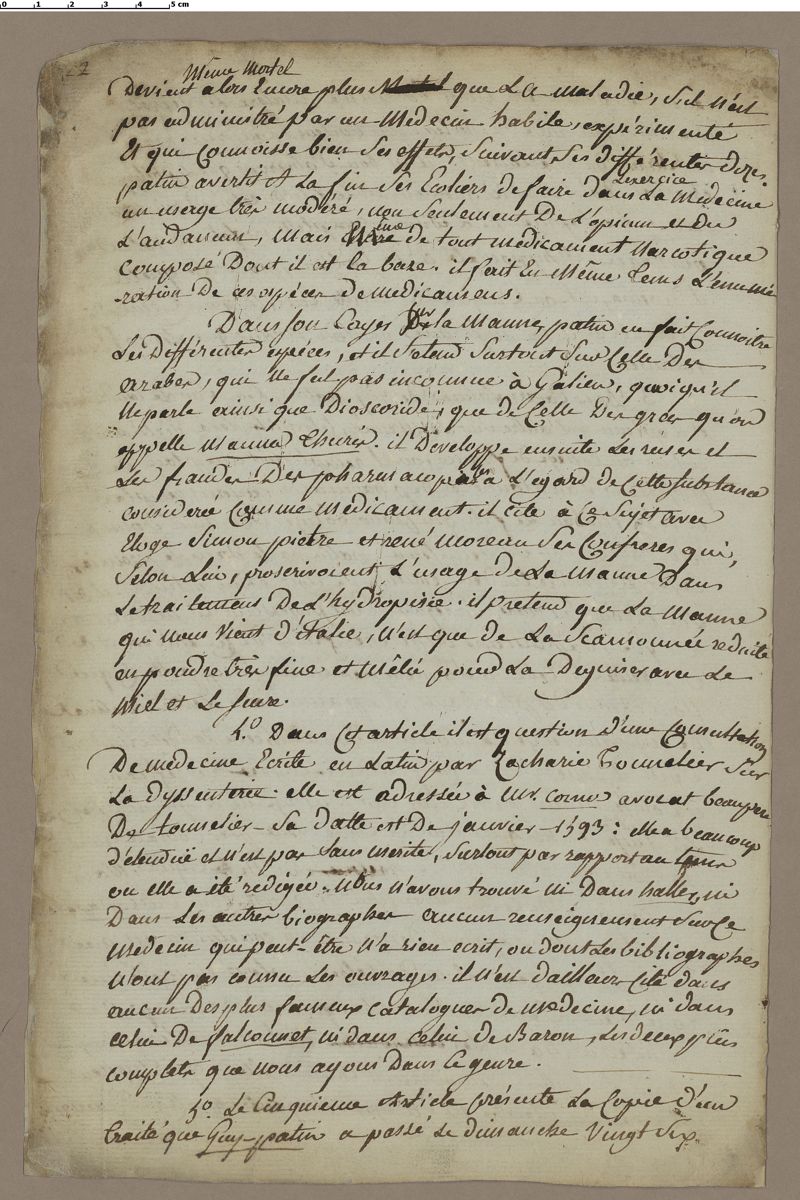 0 1 2 3 4 5 cm
22
même mortel
Devient alors Encore plus mortel que La maladie, s'il n'est
pas administré par un Medecin habile, expérimenté
Et qui Connoisse bien ses effets, suivant ses différentes dozes.
patin avertit A La fin ses Ecoliers de faire dans L'exercice La Medecine
un usage très modéré, non seulement De L'opium et du
L'audanum, mais même de tout medicament narcotique
Composé Dont il est la baze. il fait En Même tems L'enumé
-ration De ces espèces de medicamens.
Dans son Cayer Sur la Manne, patin en fait Connoitre
Les Différentes espèces, et il s'etend surtout sur Celle Des
arabes, qui ne fut pas inconnue à Galien, quoiqu'il
Ne parle ainsi que Dioscoride, que de Celle Des grecs qu'on
appelle manna Thuris. il Développe ensuite Les ruses et
Les fraudes Des pharmacopoles à L'egard de Cette substance
considerée Comme médicament. il cite à Ce Sujet avec
Eloge Simon pietre et rené moreau Ses Confreres qui,
Selon Lui, proscrivoient L'usage de La Manne Dans
Le traitement De L'hydropisie. il pretend que La Manne
qui nous Vient d'italie, n'est que de La Scamonnée reduite
en poudre très fine et mêlée pour La Deguiser avec Le
Miel et Le sucre.
4.º Dans Cet article il est question d'une Consultation
De medecine Ecrite en Latin par Zacharie Tournelier Sur
La dyssenterie. elle est adressée à Mr. Cornu avocat beaupere
De tournelier - Sa datte est De janvier - 1593: elle a beaucoup
d'etenduë et n'est pas sans merite, surtout par rapport au tems
ou elle a été redigée. nous n'avons trouvé ni Dans haller, ni
Dans Les autres biographes aucun renseignement Sur Ce
Medecin qui peut-être n'a rien ecrit, ou dont Les bibliographes
N'ont pas connu Les ouvrages. il n'est d'ailleurs Cité dans
aucun Des plus fameux Catalogues de Medecine, ni dans
celui De falconnet, ni dans celui de Baron, Les deux plus
complets que nous ayons Dans Ce genre.
5º Le Cinquieme Article présente La Copie d'un
traité que Guy-patin a passé Le dimanche Vingt Six